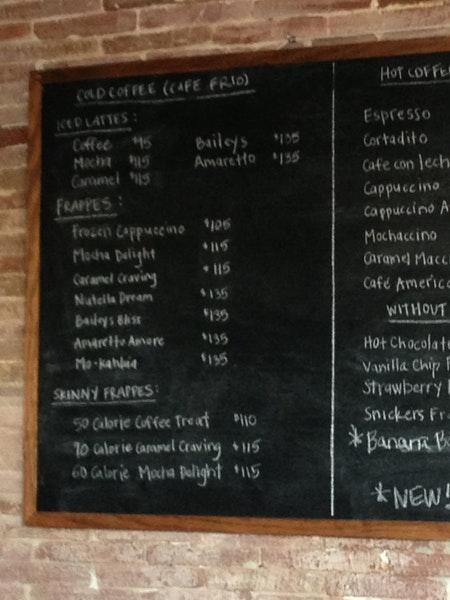 COLD COFFEE (CAFE FRIO)
ICED LATTES:
Coffee $95 Baileys $135
Mocha $115 Amaretto $135
Caramel $115
FRAPPES:
Frozen Cappuccino $105
Mocha Delight $115
Caramel Craving $115
Nutella Dream $135
Baileys Bliss $135
Amaretto Amore $135
Mo-kahlua $135
SKINNY FRAPPES:
50 Calorie Coffee Treat $110
90 Calorie Caramel Craving $115
60 Calorie Mocha Delight $115
HOT COFFE
Espresso
Cortadito
Cafe con lech
Cappuccino
Cappuccino A
Mochaccino
Caramel Macc
Café Americ
WITHOUT
Hot Chocolat
Vanilla Chip
Strawberry
Snickers Fr
*Banana B
*NEW!